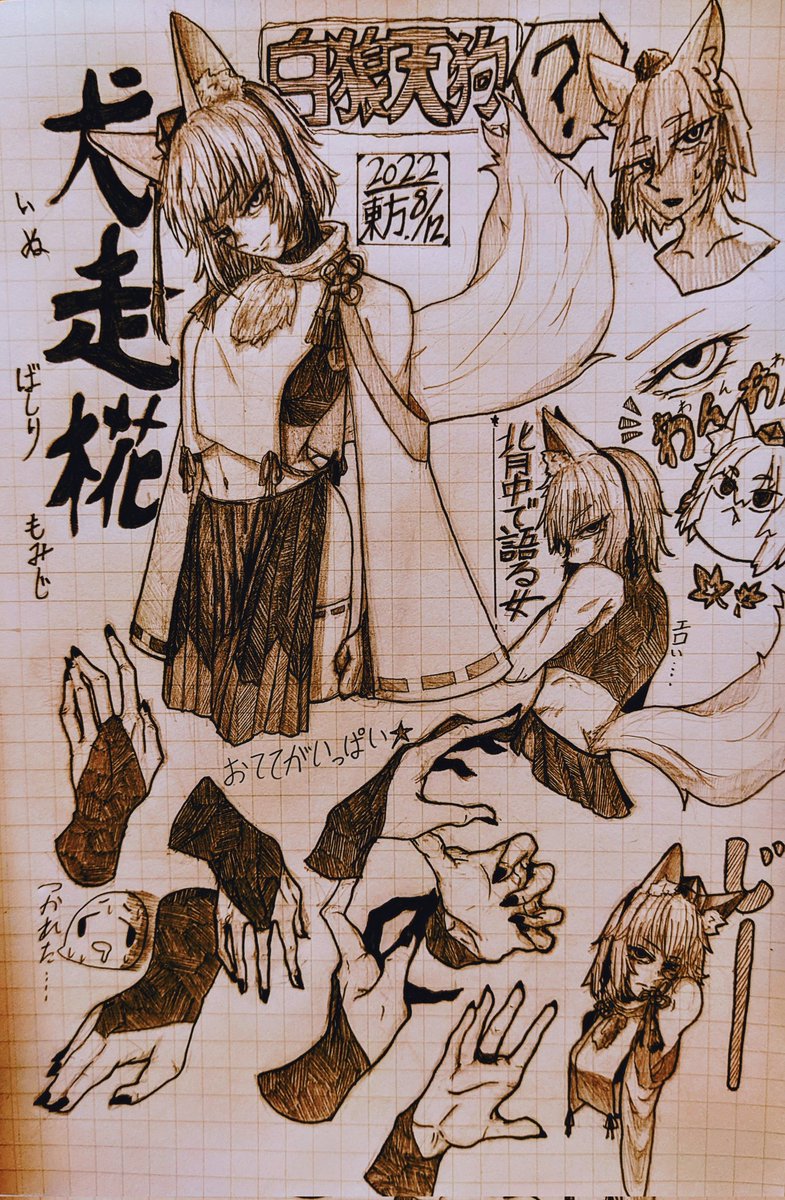 白狼天狗
?
犬走椛
いぬ
ばしり
もみじ
2022
東方.8/12.
わんわ
わんわ
背中で語る女
エロい....
おててがいっぱい☆
つかれた....
じーー